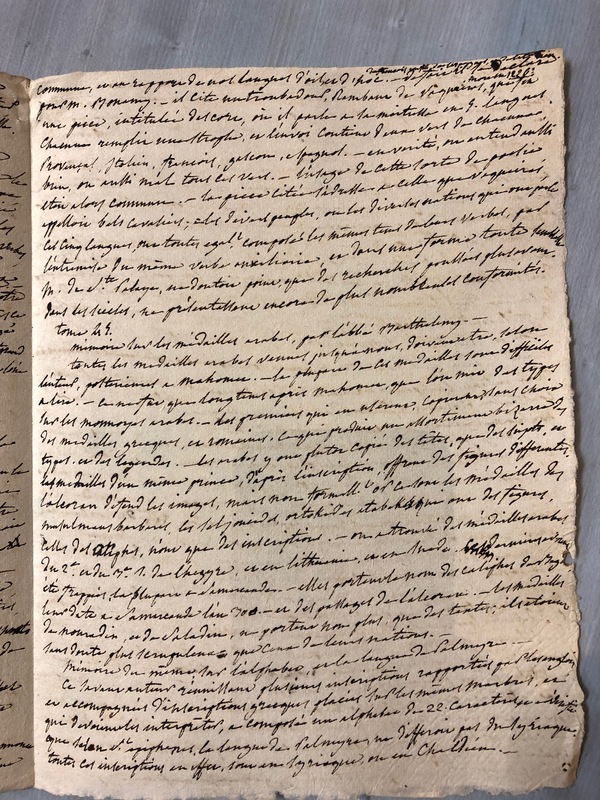 commune, en un rapport de nos langues d'oil et d'hoc.
pour M. Bonamy. - il cite un troubadour, Rambaut de Vaqueiras, qui fit
une piece, intitulée descore, où il parle a sa maitresse en 5. langues
Chacune remplit une strophe, et l'envoi contient deux vers de chacune.
Provençal, italien, françois, gascon, espagnol. - en verité, on entend aussi
bien, ou aussi mal tous ces vers. - L'usage de cette sorte de poesie
etoit alors commune. - la piece citée s'adresse a celle que Vaqueiras
appelloit bels cavaliers; les divers peuples, ou les diverses nations qui ont parlé
ces cinq langues, ont toutes egal.t composé les mêmes tems de leurs verbes, par
l'entremise du même verbe auxiliaire, et dans une forme toute semblable
M. de S.te Palaye, ne doutoit point, que des recherches poussées plus avant
dans les siecles, ne presentassent encore de plus nombreuses conformités.
tome 24.
mémoire sur les médailles arabes, par l'abbé Barthelemy. -
toutes les medailles arabes venues jusqu'à nous, doivent etre, selon
l'auteur, posterieures a mahomet. - la plupart de ces medailles sont difficiles
a lire. - ce n'est que longtems après mahomet, que l'on mit des types
sur les monnoyes arabes. - les premiers qui en userent, copierent sans choix
des medailles grecques, et romaines. ce qui produit un assortiment bizarre de
types et des legendes. - les arabes y ont plutot copié des têtes, que des sujets, et
les medailles d'un même prince, d'après l'inscription, offrent des figures differentes.
l'alcoran defend les images, mais non formell.t or ce sont les médailles des
musulmans barbares, les seljoucides, ortokides et atabeks qui ont des figures,
celles des califes, n'ont que des inscriptions. - on a trouvé des médailles arabes
du 2.e et du 3.e s. de l'hegyre, et en lithuanie, et en suede.
été frappés, la plupart a samarcande. - elles portent le nom des califes de Bagdad
leur date a samarcande l'an 300. - et des passages de l'alcoran. - les medailles
de nouradin, et de saladin, ne portent non plus, que des textes, ils etoient
sans doute plus scrupuleux que ceux de leurs nations. -
Mémoire du même, sur l'alphabet, et la langue de Palmyre. -
Ce savant auteur reunissant plusieurs inscriptions rapportées par les anglois
et accompagnées d'inscriptions grecques placées sur les mêmes marbres, et
qui devoient les interpreter, a composé un alphabet de 22. caracteres,
que selon S.t epiphane, la langue de Palmyre, ne differoit pas du syriaque
toutes ces inscriptions en effet, sont en syriaque, ou en Chaldéen. -